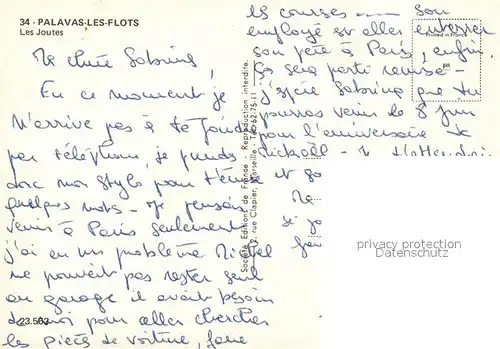 34 - PALAVAS-LES-FLOTS
Les Joutes
Ma chère Sabrina,
En ce moment je
n'arrive pas à te joindre
par téléphone, je prends
donc mon stylo pour t'écrire
quelques mots - Je pensais
venir à Paris seulement
j'ai eu un problème Michel
ne pouvait pas rester seul
au garage il avait besoin
de moi pour aller chercher
les pièces de voiture, faire
23.563
les courses son
employé est allé enterrer
son père à Paris, enfin.
Ça sera partie remise -
j'espère Sabrina que tu
pourras venir le 8 juin
pour l'anniversaire de
Mickaël -
et
Société Editions de France - Reproduction interdite.
rue Clapier, Marseille - Tél.
Printed in France
privacy protection